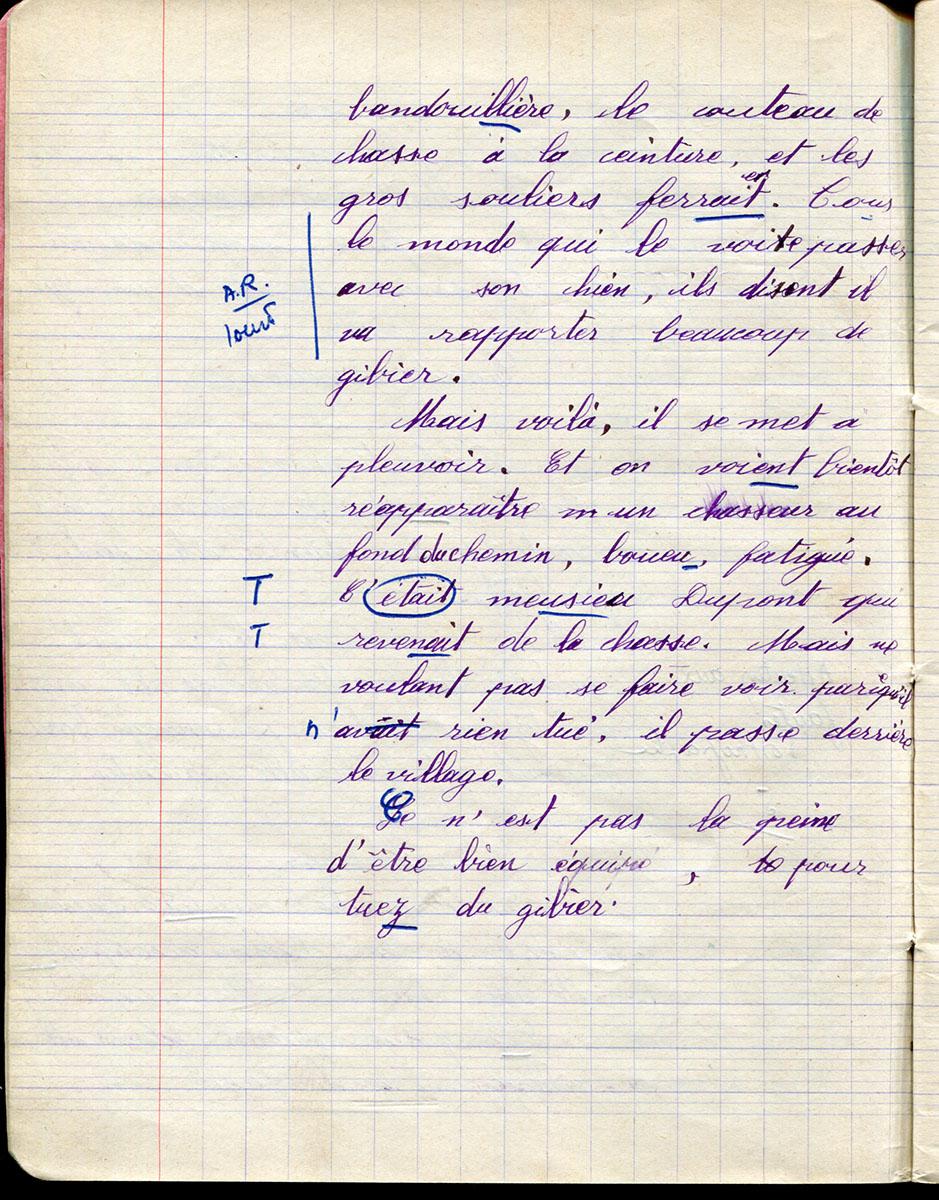 bandouillière, le couteau de
chasse à la ceinture, et les
er
gros souliers ferrait. Tous
le monde qui le voite passer
A.R.
avec son chien, ils disent il
lourd
va rapporter beaucoup de
gibier.
Mais voilà, il se met a
pleuvoir. Et on voient bientôt
réapparaître un chasseur au
fond du chemin, boueu, fatigué.
T C'était meusieu Dupont qui
T revenait de la chasse. Mais ne
voulant pas se faire voir parcequ'il
n'avait rien tué, il passe derrière
le village.
Ce n'est pas la peine
d'être bien équipé, pour
tuez du gibier.